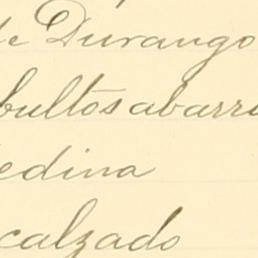 de Durango
bultos abarro
edina
calzado